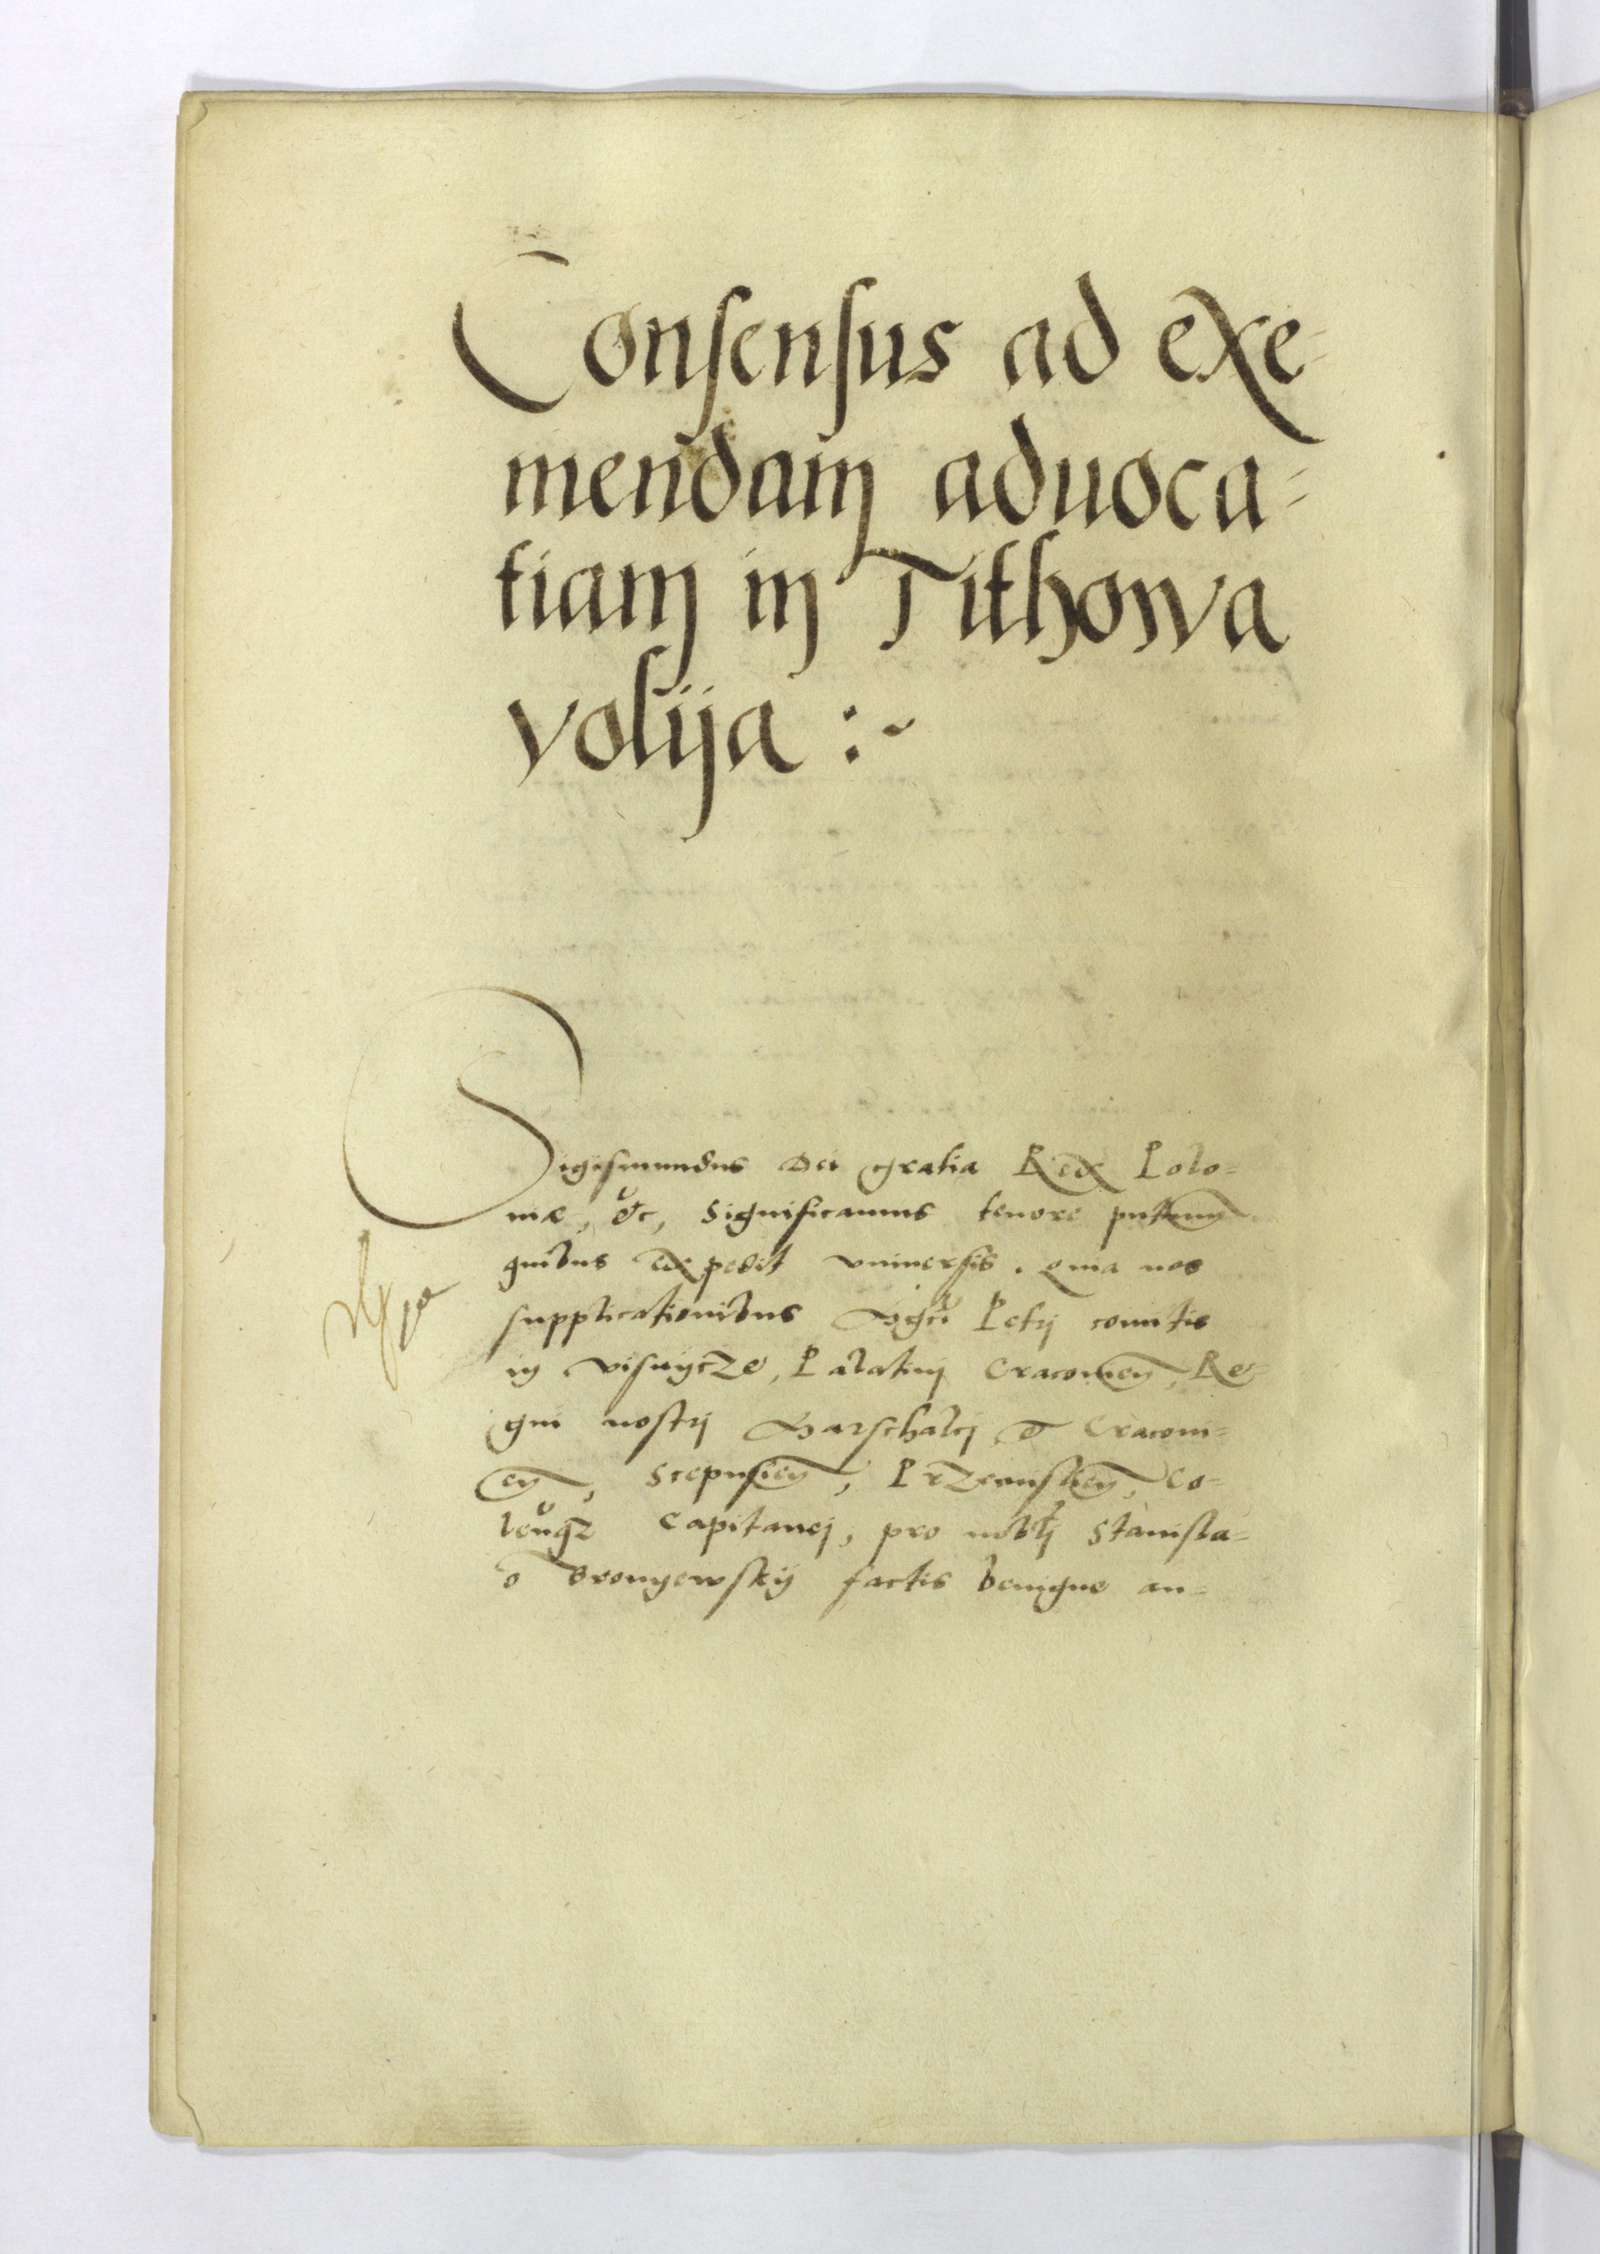 Consensus ad exe-
mendam aduoca-
tiam in Tithowa
volija :~
Sigismundus Dei gratia Rex Polo-
niæ, &c, Significamus tenore pntium
quibus expedit vniuersis. Quia nos
supplicationibus Mgci Petrj comitis
in Visnycze, Palatinj Cracovien, Re-
gni nostrj Marschalcj & Cracovi-
en, Scepusien, Colenqz Capitanej, pro nobilj Stanisla-
o Dronyewskij factis benigne an-